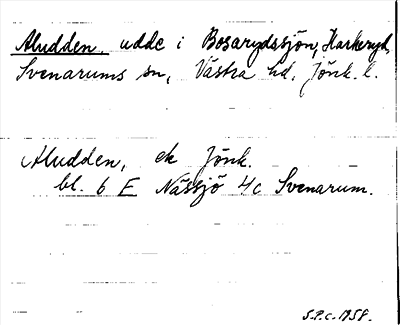 Aludden, udde i Bosarydssjön, Harkeryd,
Svenarums sn, Västra hd, Jönk. l.
Aludden, ek Jönk.
bl. 6 E Nässjö 4c Svenarum.
S.P.C. 1958.